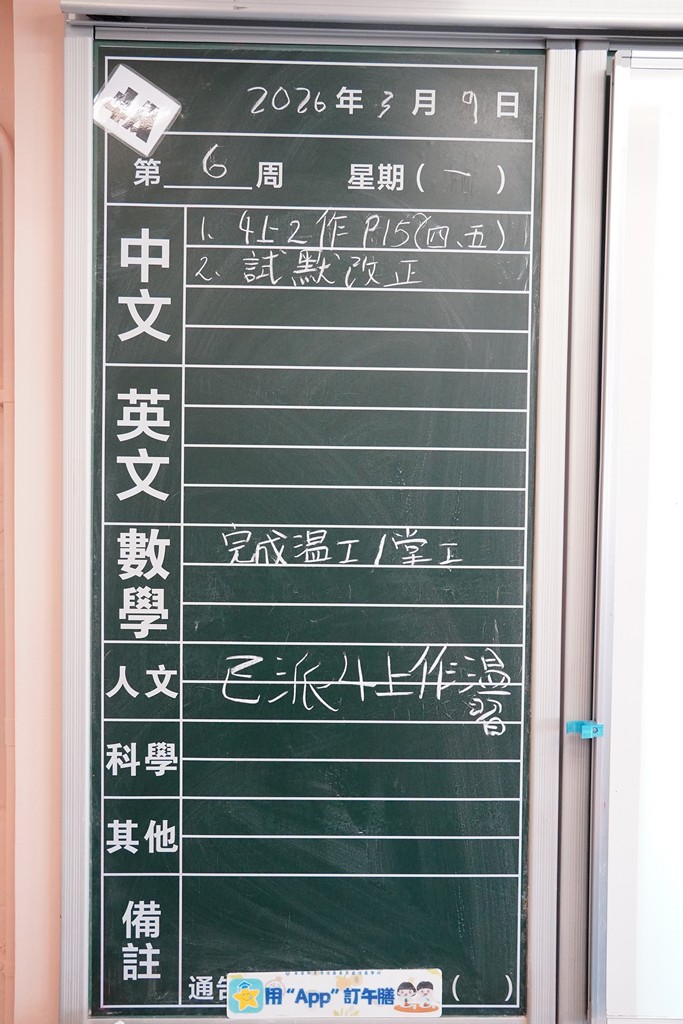 2026年3月9日
第6周 星期(一)
中文
1. 4上2作 P.15(四、五)
2. 試默改正
英文
數學
完成温工/堂工
人文
已派4上作温習
科學
其他
備註
通告
( )
用“App”訂午膳